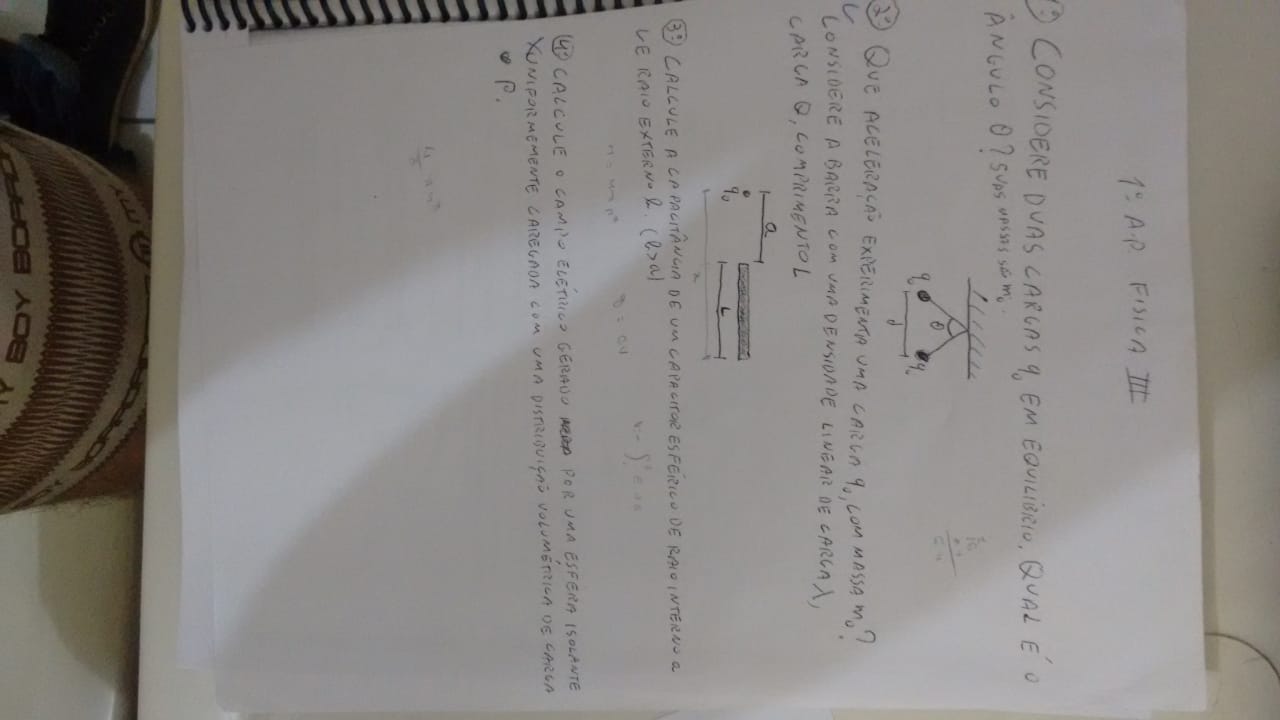 1º A.P. FISICA III
CONSIDERE DUAS CARGAS q₀ EM EQUILÍBRIO, QUAL É O
ÂNGULO θ? SUAS MASSAS SÃO m₀.
θ
q₀ q₀
d
2º QUE ACELERAÇÃO EXPERIMENTA UMA CARGA q₀, COM MASSA m₀?
CONSIDERE A BARRA COM UMA DENSIDADE LINEAR DE CARGA λ,
CARGA Q, COMPRIMENTO L
a
q₀
L
x
3º CALCULE A CAPACITÂNCIA DE UM CAPACITOR ESFÉRICO DE RAIO INTERNO a
E RAIO EXTERNO b. (b>a)
4º CALCULE O CAMPO ELÉTRICO GERADO POR UMA ESFERA ISOLANTE
UNIFORMEMENTE CAREGADA COM UMA DISTRIBUIÇÃO VOLUMÉTRICA DE CARGA
ρ.
BOY BORRO